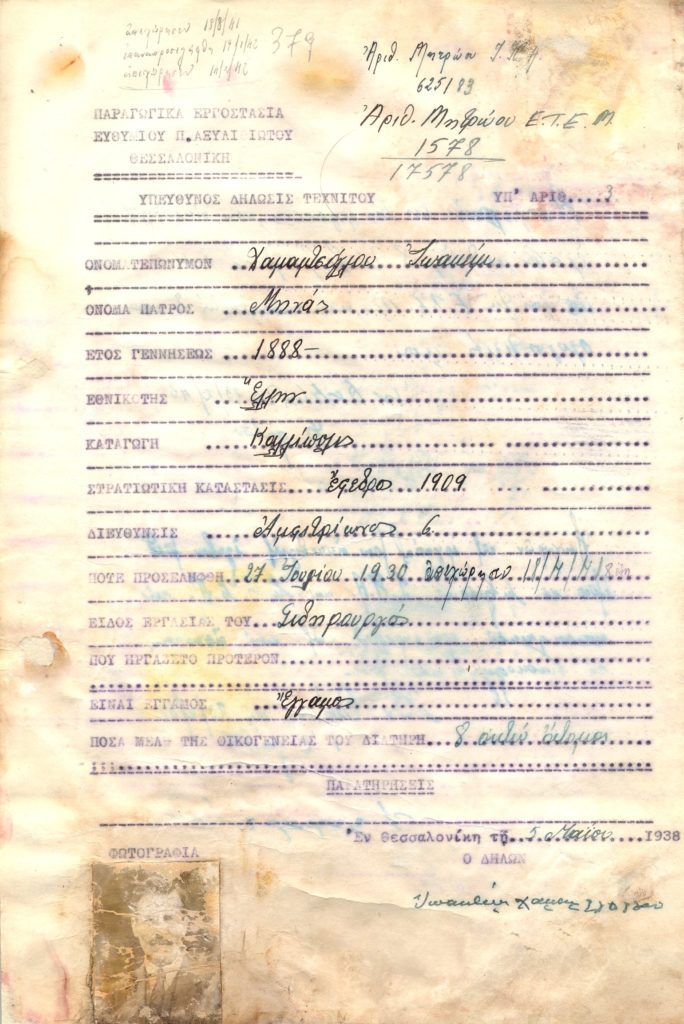 απεχώρησεν 18/8/41
επαναπροσελήφθη 14/1/42
απεχώρησεν 10/2/42
379
Ἀριθ. Μητρώου Ι.Κ.Α.
625183
Ἀριθ. Μητρώου Ε.Τ.Ε.Μ.
1578
17578
ΠΑΡΑΓΩΓΙΚΑ ΕΡΓΟΣΤΑΣΙΑ
ΕΥΘΥΜΙΟΥ Π.ΑΞΥΛΙΘΙΩΤΟΥ
ΘΕΣΣΑΛΟΝΙΚΗ
ΥΠΕΥΘΥΝΟΣ ΔΗΛΩΣΙΣ ΤΕΧΝΙΤΟΥ ΥΠ' ΑΡΙΘ.....3
ΟΝΟΜΑΤΕΠΩΝΥΜΟΝ Ἰωακείμ
ΟΝΟΜΑ ΠΑΤΡΟΣ Μηνάς
ΕΤΟΣ ΓΕΝΝΗΣΕΩΣ ...1888-
ΕΘΝΙΚΟΤΗΣ Ἕλλην
ΚΑΤΑΓΩΓΗ Καλλίπολις
ΣΤΡΑΤΙΩΤΙΚΗ ΚΑΤΑΣΤΑΣΙΣ.... Ἔφεδρος 1909
ΔΙΕΥΘΥΝΣΙΣ Ἀμφιτρίωνος 6
ΠΟΤΕ ΠΡΟΣΕΛΗΦΘΗ 27 1930 ἀπεχώρησεν
ΕΙΔΟΣ ΕΡΓΑΣΙΑΣ ΤΟΥ Σιδηρουργός
ΠΟΥ ΗΡΓΑΖΕΤΟ ΠΡΟΤΕΡΟΝ
ΕΙΝΑΙ ΕΓΓΑΜΟΣ Ἔγγαμος
ΠΟΣΑ ΜΕΛΗ ΤΗΣ ΟΙΚΟΓΕΝΕΙΑΣ ΤΟΥ ΔΙΑΤΗΡΗ 8 ὀκτώ ἄτομα
ΠΑΡΑΤΗΡΗΣΕΙΣ
Ἐν Θεσσαλονίκη τῇ 5 Μαΐου 1938
ΦΩΤΟΓΡΑΦΙΑ Ο ΔΗΛΩΝ